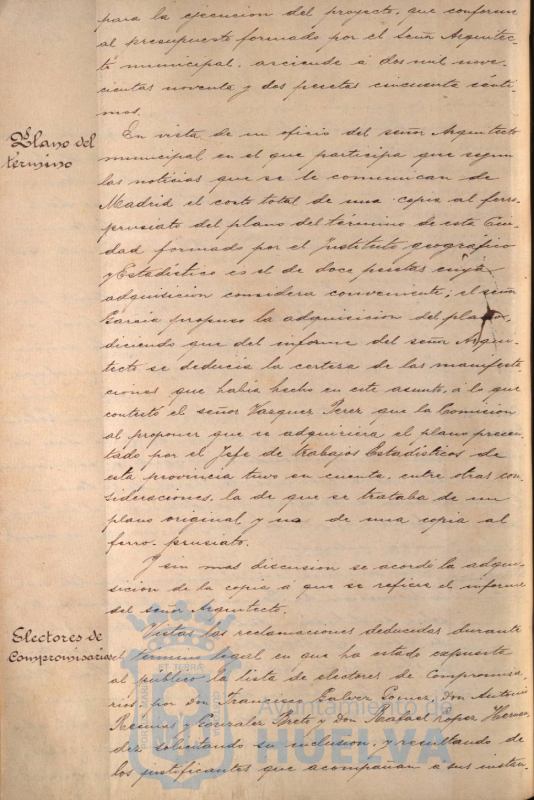 para la ejecucion del proyecto, que conforme
al presupuesto formado por el Señor Arquitec-
to municipal, asciende á dos mil nove-
cientas noventa y dos pesetas cincuenta cénti-
mos.
Plano del
término
En vista de un oficio del señor Arquitecto
municipal en el que participa que segun
las noticias que se le comunican de
Madrid el costo total de una copia al ferro-
prusiato del plano del término de esta Ciu-
dad formado por el Instituto geográfico
y Estadístico es el de doce pesetas cuya
adquisicion considera conveniente; el señor
Garcia propuso la adquisicion del plano,
diciendo que del informe del señor Arqui-
tecto se deducia la certeza de las manifesta-
ciones que habia hecho en este asunto, á lo que
contestó el señor Vazquez Perez que la Comision
al proponer que se adquiriera el plano presen-
tado por el Jefe de trabajos Estadísticos de
esta provincia tuvo en cuenta, entre otras con-
sideraciones, la de que se trataba de un
plano original y no de una copia al
ferro-prusiato.
Y sin mas discusion se acordó la adqui-
sicion de la copia á que se refiere el informe
del señor Arquitecto.
Electores de
Compromisarios
Vistas las reclamaciones deducidas durante
el término legal en que ha estado expuesta
al público la lista de electores de Compromisa-
rios, por don Francisco Galvez Gomez, don Antonio
Gonzalez Prieto y don Rafael Lopez Hernan-
dez solicitando su inclusion, y resultando de
los justificantes que acompañan á sus instan-
Ayuntamiento de
HUELVA